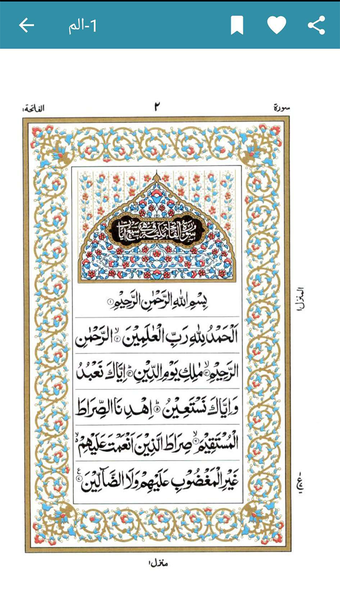 1-الم
سورة ٢ الفاتحة١
سورة الفاتحة مكية وهي سبع آيات
بِسْمِ اللهِ الرَّحْمٰنِ الرَّحِيْمِ ١
اَلْحَمْدُ لِلّٰهِ رَبِّ الْعٰلَمِيْنَ ۙ الرَّحْمٰنِ
الرَّحِيْمِ ۙ مٰلِكِ يَوْمِ الدِّيْنِ ؕ اِيَّاكَ نَعْبُدُ
وَاِيَّاكَ نَسْتَعِيْنُ ؕ اِهْدِنَا الصِّرَاطَ
الْمُسْتَقِيْمَ ۙ صِرَاطَ الَّذِيْنَ اَنْعَمْتَ عَلَيْهِمْ
غَيْرِ الْمَغْضُوْبِ عَلَيْهِمْ وَلَا الضَّآلِّيْنَ
المنزل١
منزل١